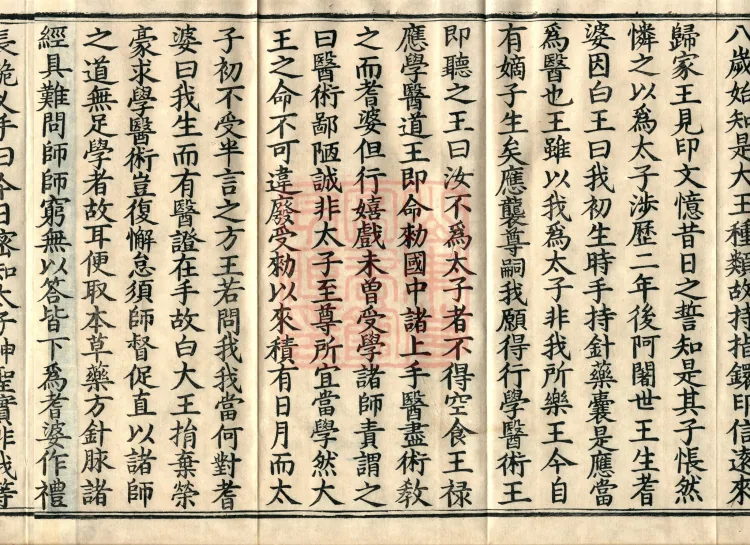 八歲始知是大王種類故持指鐶印信遠來
歸家王見印文憶昔日之誓知是其子悵然
憐之以爲太子涉歷二年後阿闍世王生耆
婆因白王曰我初生時手持針藥囊是應當
爲醫也王雖以我爲太子非我所樂王今自
有嫡子生矣應襲尊嗣我願得行學醫術王
即聽之王曰汝不爲太子者不得空食王禄
應學醫道王即命勑國中諸上手醫盡術教
之而耆婆但行嬉戲未曽受學諸師責謂之
曰醫術鄙陋誠非太子至尊所宜當學然大
王之命不可違廢受勑以來積有日月而太
子初不受半言之方王若問我我當何對耆
婆曰我生而有醫證在手故白大王捐棄榮
豪求學醫術豈復懈怠須師督促直以諸師
之道無足學者故耳便取本草藥方針脉諸
經具難問師師窮無以答皆下爲耆婆作禮
長跪叉手曰今日密知太子神聖實非我等